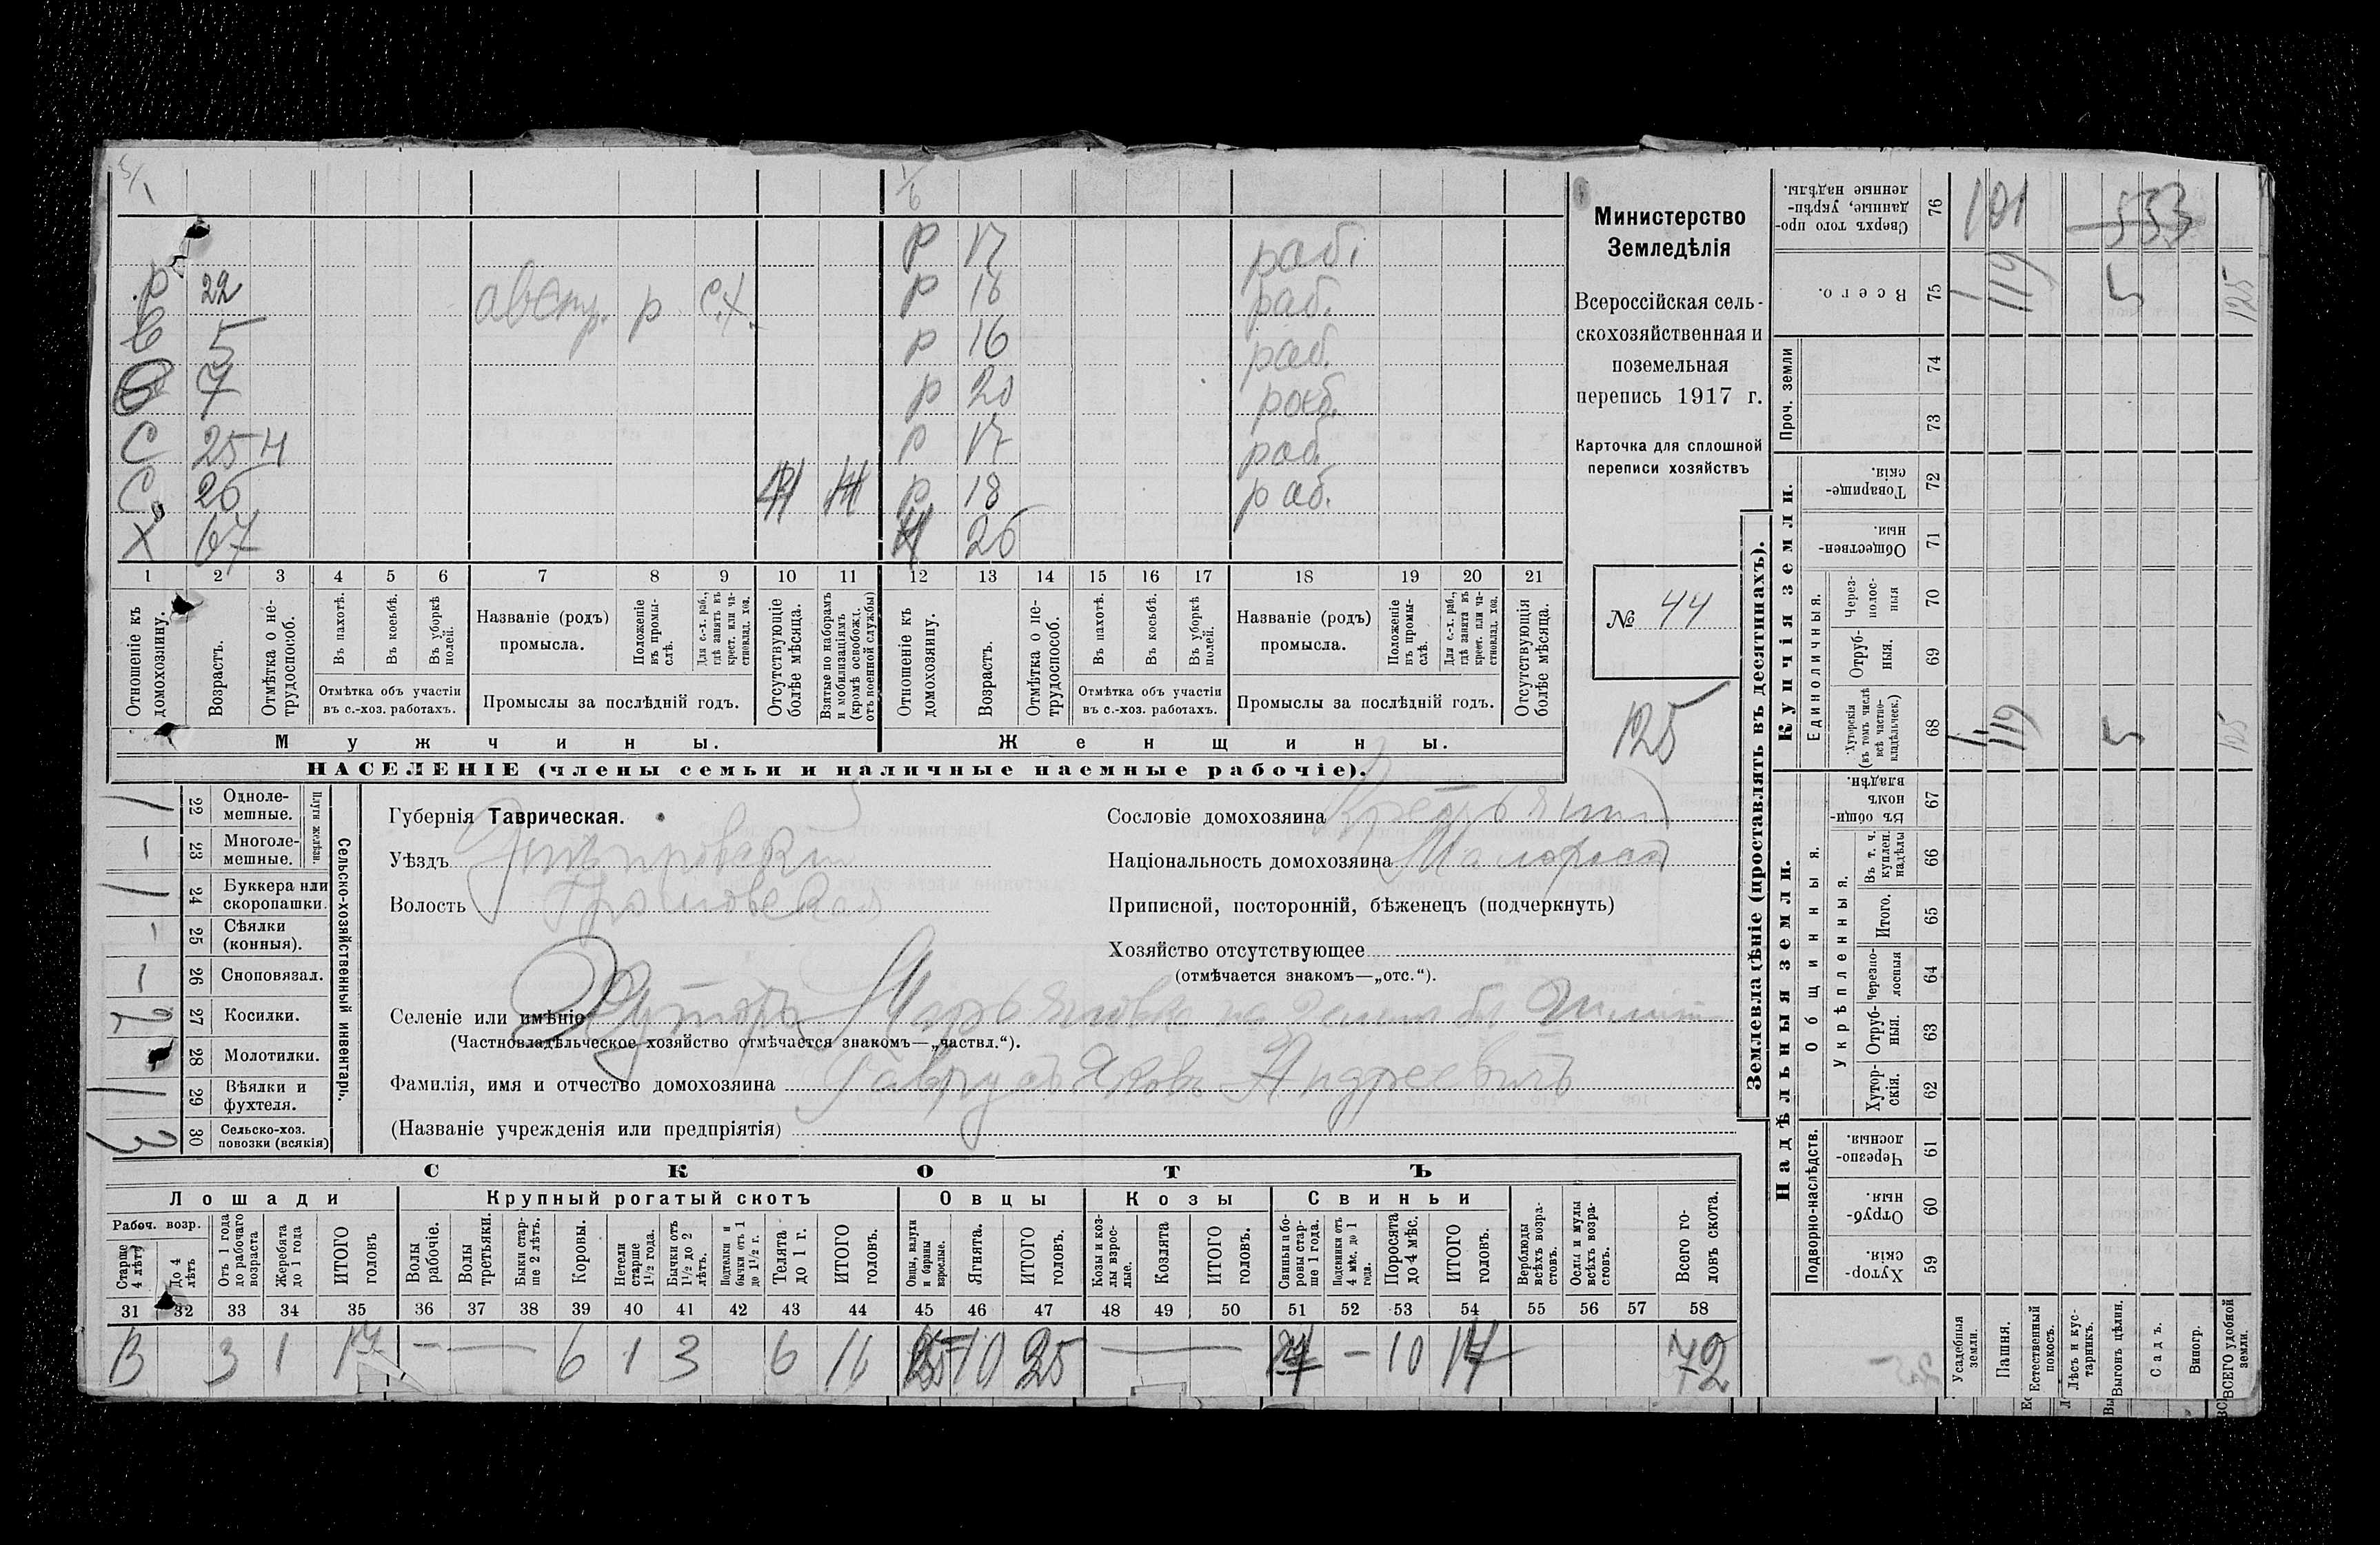 5/1
1/6
р 17 раб.
р 22 австр. р с.х. р 18 раб.
С 5 р 16 раб.
7 р 20 раб.
С 25 Н р 17 раб.
С 26 р 18 раб.
Х 67 26
1 2 3 4 5 6 7 8 9 10 11 12 13 14 15 16 17 18 19 20 21
Отношеніе къ домохозяину.
Возрастъ.
Отмѣтка о нетрудоспособ.
Въ пахотѣ.
Въ косьбѣ.
Въ уборкѣ полей.
Отмѣтка объ участіи въ с.-хоз. работахъ.
Названіе (родъ) промысла.
Положеніе въ промыслѣ.
Для с.-х. раб., гдѣ занятъ въ крест. или частновлад. хоз.
Промыслы за послѣдній годъ.
Отсутствующіе болѣе мѣсяца.
Взятые по наборамъ и мобилизаціямъ (кромѣ освобожд. отъ военной службы)
Отношеніе къ домохозяину.
Возрастъ.
Отмѣтка о нетрудоспособ.
Въ пахотѣ.
Въ косьбѣ.
Въ уборкѣ полей.
Отмѣтка объ участіи въ с.-хоз. работахъ.
Названіе (родъ) промысла.
Положеніе въ промыслѣ.
Для с.-х. раб., гдѣ занята въ крест. или частновлад. хоз.
Промыслы за послѣдній годъ.
Отсутствующія болѣе мѣсяца.
Мужчины. Женщины.
НАСЕЛЕНІЕ (члены семьи и наличные наемные рабочіе).
Министерство
Земледѣлія
Всероссійская сель-
скохозяйственная и
поземельная
перепись 1917 г.
Карточка для сплошной
переписи хозяйствъ
№ 44
125
Сельско-хозяйственный инвентарь.
Плуги желѣзн.
1 22 Одноле-мешные.
— 23 Многоле-мешные.
1 24 Буккера или скоропашки.
— 25 Сѣялки (конныя).
— 26 Сноповязал.
2 27 Косилки.
28 Молотилки.
1 29 Вѣялки и фухтеля.
3 30 Сельско-хоз. повозки (всякія)
Губернія Таврическая.
Уѣздъ Днѣпровскій
Волость Громовская
Селеніе или имѣніе Хуторъ
(Частновладѣльческое хозяйство отмѣчается знакомъ—„частвл.“).
Фамилія, имя и отчество домохозяина Яковъ Андреевичъ
(Названіе учрежденія или предпріятія)
Сословіе домохозяина Крестьянинъ
Національность домохозяина Малоросъ
Приписной, посторонній, бѣженецъ (подчеркнуть)
Хозяйство отсутствующее
(отмѣчается знакомъ—„отс.“).
СКОТЪ
Лошади Крупный рогатый скотъ Овцы Козы Свиньи
Рабоч. возр.
Старше 4 лѣтъ
До 4 лѣтъ
Отъ 1 года до рабочаго возраста
Жеребята до 1 года
ИТОГО головъ
Волы рабочіе.
Волы третьяки.
Быки старше 2 лѣтъ.
Коровы.
Нетели старше 1½ года.
Бычки отъ 1½ до 2 лѣтъ.
Подтелки и бычки отъ 1 до 1½ г.
Телята до 1 г.
ИТОГО головъ.
Овцы, валухи и бараны взрослые.
Ягнята.
ИТОГО головъ.
Козы и козлы взрослые.
Козлята
ИТОГО головъ.
Свиньи и боровы старше 1 года.
Подсвинки отъ 4 мѣс. до 1 года.
Поросята до 4 мѣс.
ИТОГО головъ.
Верблюды всѣхъ возрастовъ.
Ослы и мулы всѣхъ возрастовъ.
Всего головъ скота.
31 32 33 34 35 36 37 38 39 40 41 42 43 44 45 46 47 48 49 50 51 52 53 54 55 56 57 58
3 1 17 — 6 1 3 6 16 10 25 — — 10 17 72
Землевладѣніе (проставлять въ десятинахъ).
Купчія земли.
Надѣльныя земли.
Проч. земли
Единоличныя.
Общинныя.
Укрѣпленныя.
Подворно-наслѣдств.
Сверхъ того проданные, укрѣпленные надѣлы. 76 101 553
Всего. 75 1 119 5 125
74
73
Товарищескія. 72
Общественныя. 71
Черезполосныя 70
Отрубныя. 69
Хуторскія (въ томъ числѣ всѣ частновладѣльческ.) 68 1 119 5 125
Въ общинномъ владѣн. 67
Въ т. ч. куплен. надѣлы 66
Итого. 65
Черезполосныя 64
Отрубныя. 63
Хуторскія. 62
Черезполосныя. 61
Отрубныя. 60
Хуторскія. 59
Усадебныя земли.
Пашня.
Естественный покосъ.
Лѣсъ и кустарникъ.
Выгонъ цѣлин.
Садъ.
Виногр.
ВСЕГО удобной земли.